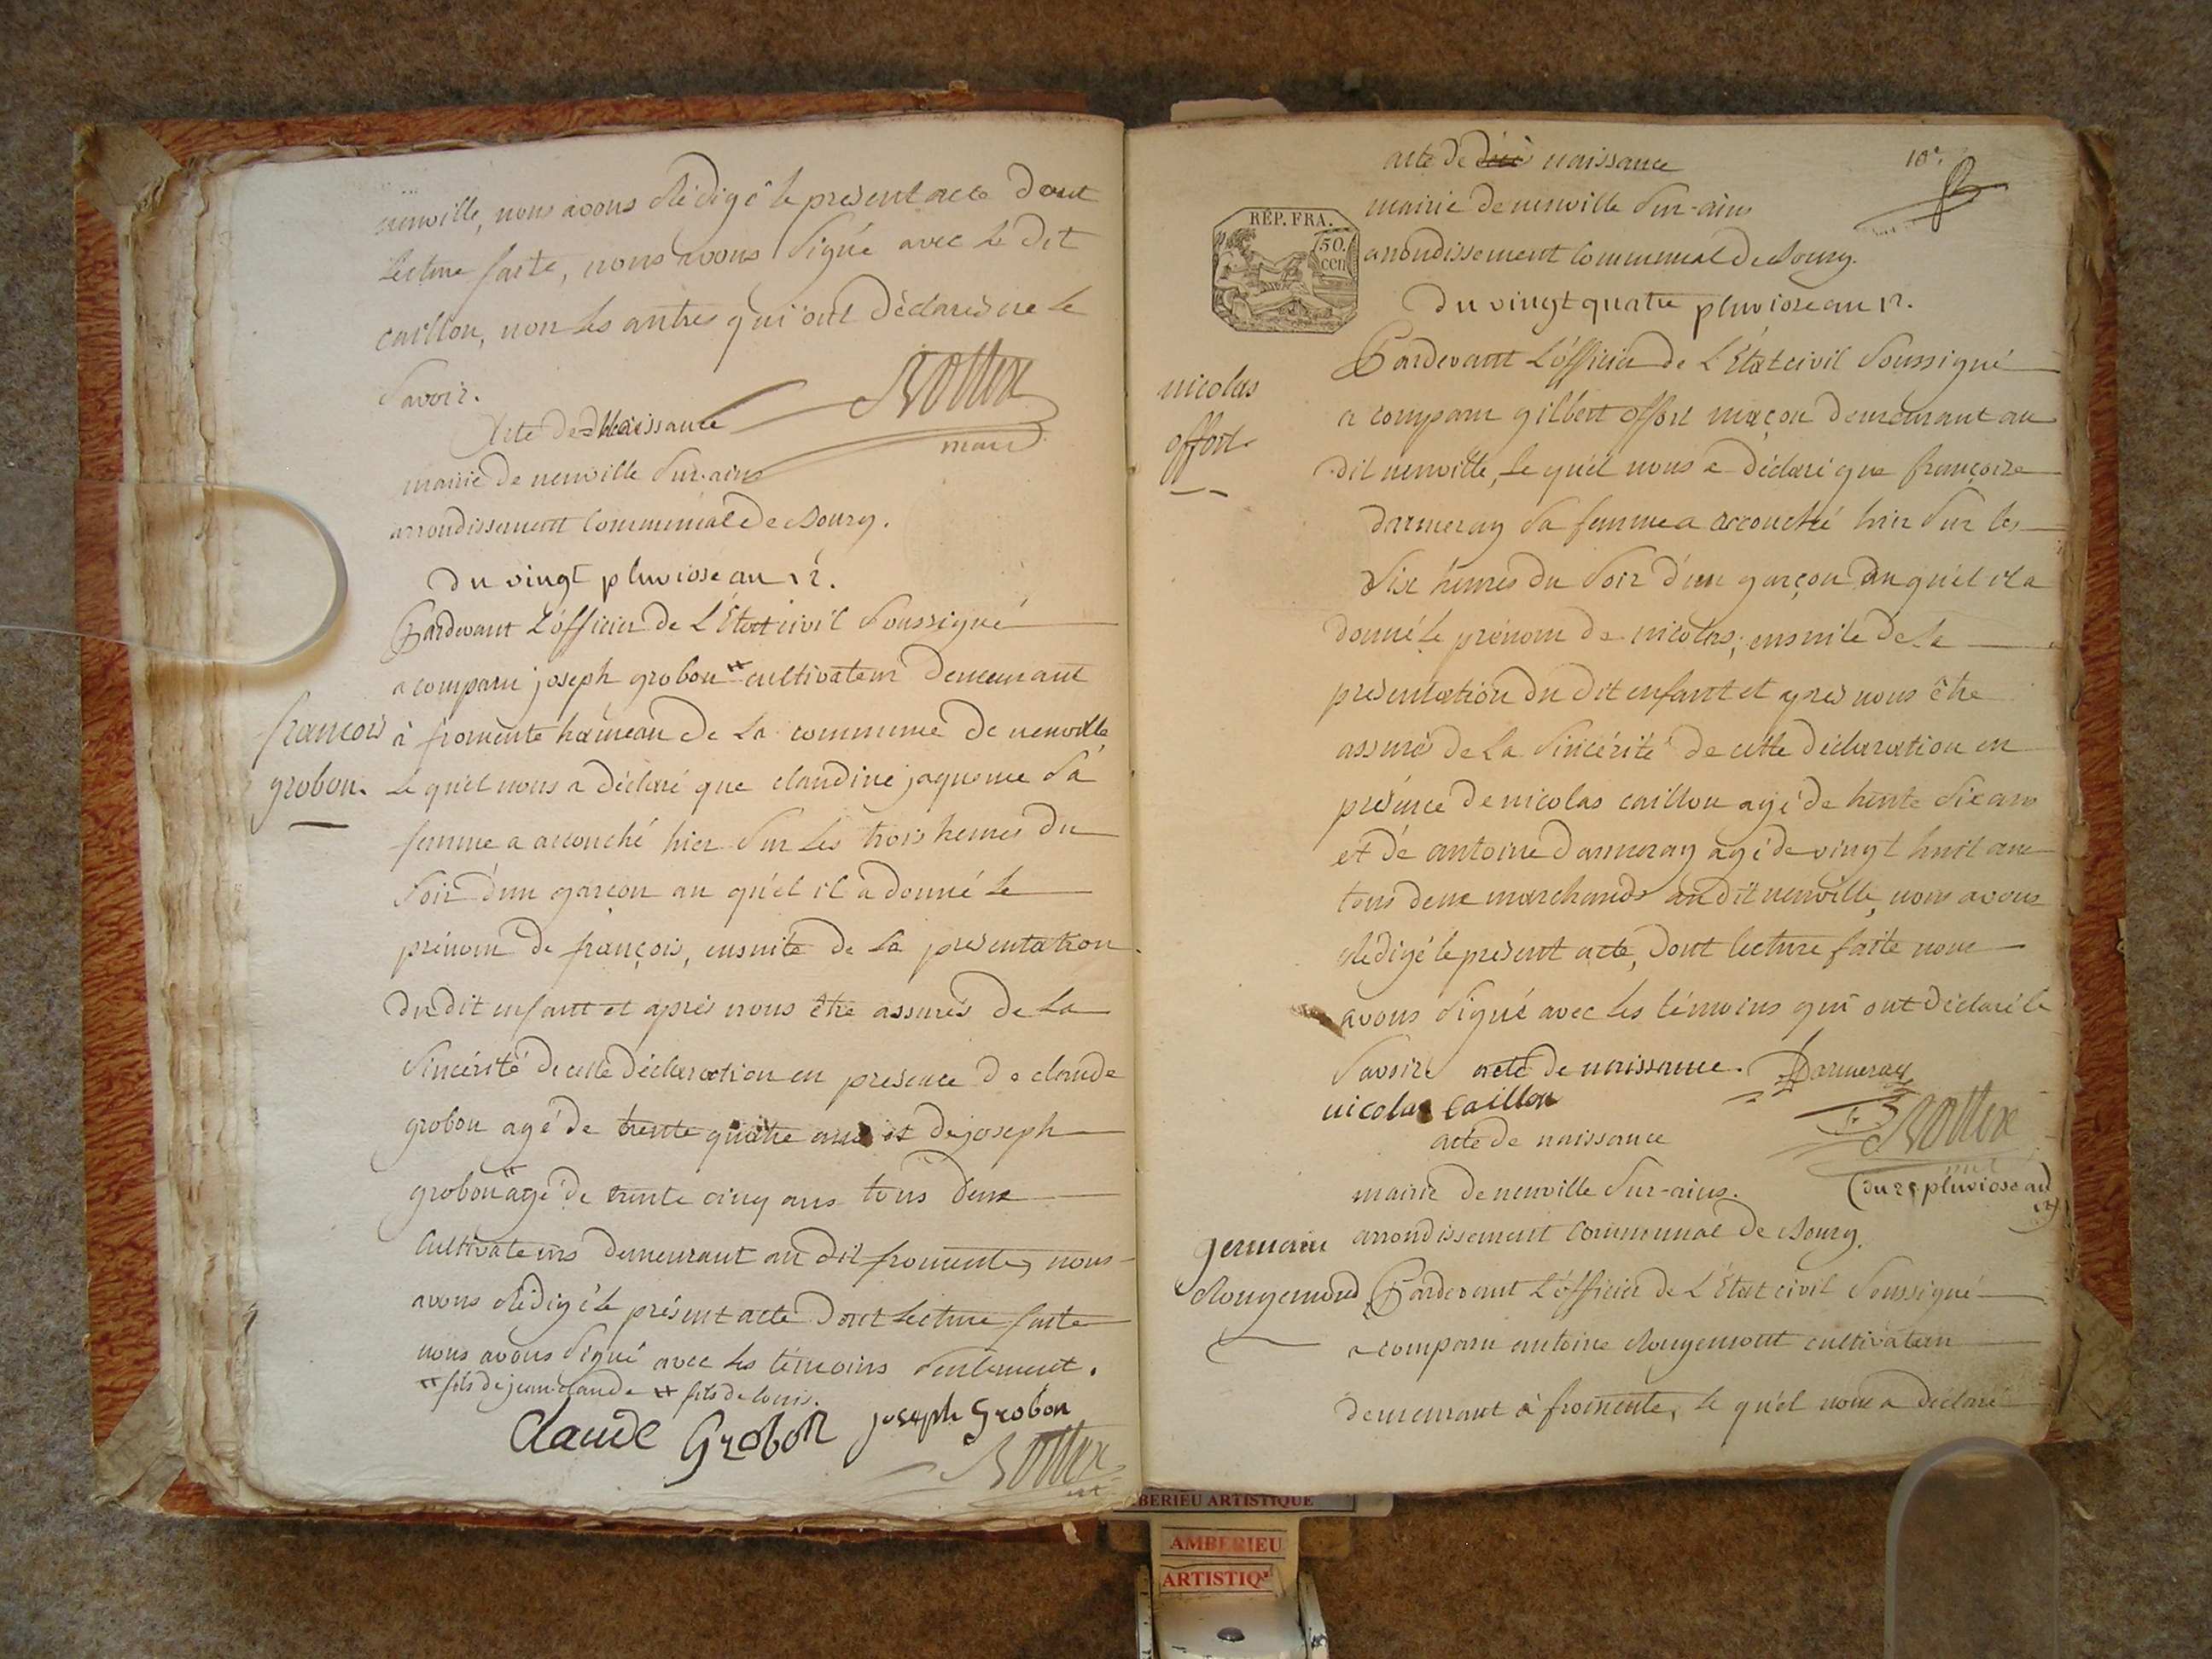 neuville, nous avons rédigé le present acte dont
lecture faite, nous avons signé avec le dit
caillon, non les autres qui ont déclarés ne le
savoir.
Rottier
maire
Acte de Naissance
mairie de neuville sur-ains
arrondissement communal de Bourg.
du vingt pluviose an 12.
Pardevant L'officier de L'État civil soussigné
a comparu joseph grobon ** cultivateur demeurant
françois
grobon.
à fromente hameau de la commune de neuville
le qu'el nous a déclaré que claudine jaqueme sa
femme a accouché hier sur les trois heures du
soir d'un garçon au qu'el il a donné le
prénom de françois, ensuite de la presentation
du dit enfant et après nous être assurés de la
sincérité de cette déclaration en presence de claude
grobon agé de trente quatre ans et de joseph
grobon ** agé de trente cinq ans tous deux
cultivateurs demeurant au dit fromente, nous
avons rédigé le présent acte dont lecture faite
nous avons signé avec les témoins seulement.
** fils de jean claude ** fils de louis.
Claude Grobon joseph Grobon
Rottier
10e.
acte de décè naissance
mairie de neuville sur-ains
RÉP. FRA.
50.
cen
arrondissement communal de Bourg.
du vingt quatre pluviose an 12.
Pardevant L'officier de L'État civil soussigné
nicolas
offort
a comparu gilbert offort maçon demeurant au
dit neuville, le qu'el nous a déclaré que françoise
darmeray sa femme a accouché hier sur les
six heures du soir d'un garçon au qu'el il a
donné le prénom de nicolas; ensuite de la
presentation du dit enfant et après nous être
assuré de la sincérité de cette déclaration en
présence de nicolas caillon agé de trente six ans
et de antoine darmeray agé de vingt huit ans
tous deux marchands au dit neuville, nous avons
rédigé le present acte, dont lecture faite nous
avons signé avec les témoins qui ont déclaré le
savoir acte de naissance. Darmeray
nicolas caillon
Rottier
acte de naissance
mairie de neuville sur-ains.
(du 25 pluviose an
12)
arrondissement communal de Bourg.
germain
Rougemond
Pardevant L'officier de L'État civil soussigné
a comparu antoine Rougemont cultivateur
demeurant à fromente, le qu'el nous a déclaré
BERIEU ARTISTIQUE
AMBERIEU
ARTISTIQ